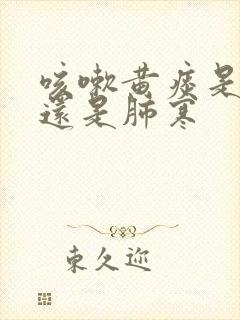 咳嗽黄痰是
还是肺寒
東久迩